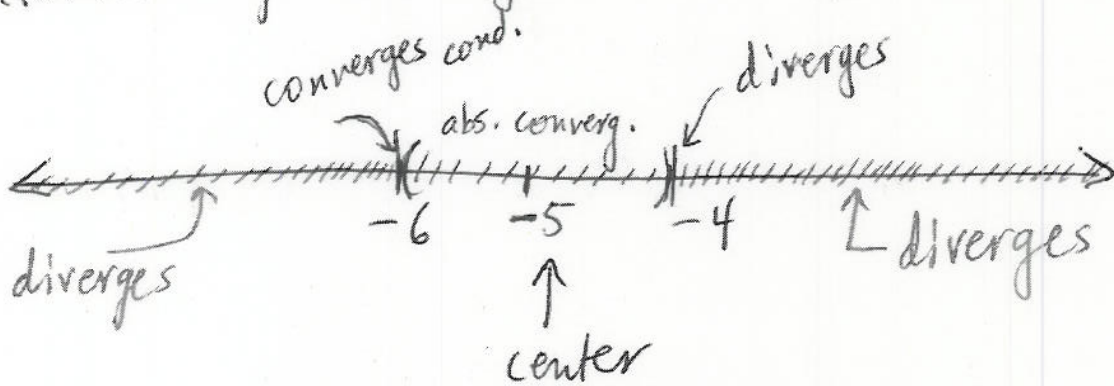 converges cond.
diverges
abs. converg.
-6
-5
-4
diverges
diverges
center